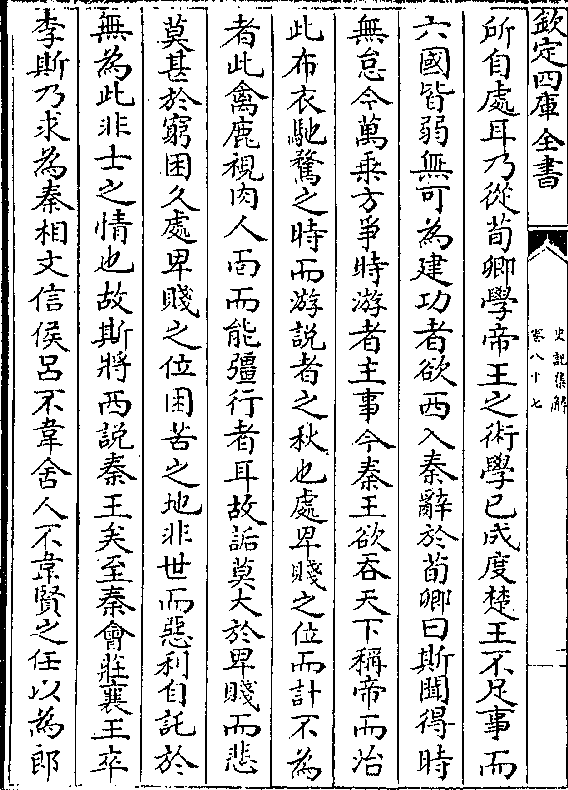 欽定四庫全書
史記集解
卷八十七
所自處耳乃從荀卿學帝王之術學已成度楚王不足事而
六國皆弱無可為建功者欲西入秦辭於荀卿曰斯聞得時
無怠今萬乘方爭時游者主事今秦王欲吞天下稱帝而治
此布衣馳騖之時而游說者之秋也處卑賤之位而計不為
者此禽鹿視肉人面而能彊行者耳故詬莫大於卑賤而悲
莫甚於窮困久處卑賤之位困苦之地非世而惡利自託於
無為此非士之情也故斯將西說秦王矣至秦會莊襄王卒
李斯乃求為秦相文信侯呂不韋舍人不韋賢之任以為郎